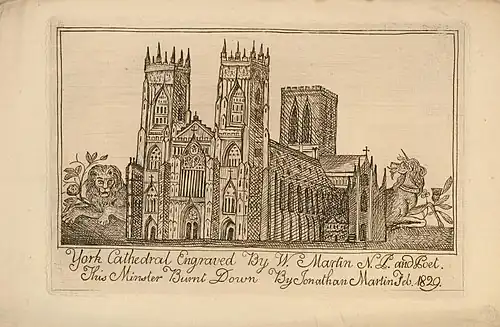 York Cathedral Engraved By W. Martin N. P. and Poet.
This Minster Burnt Down By Jonathan Martin Feb. 1829.